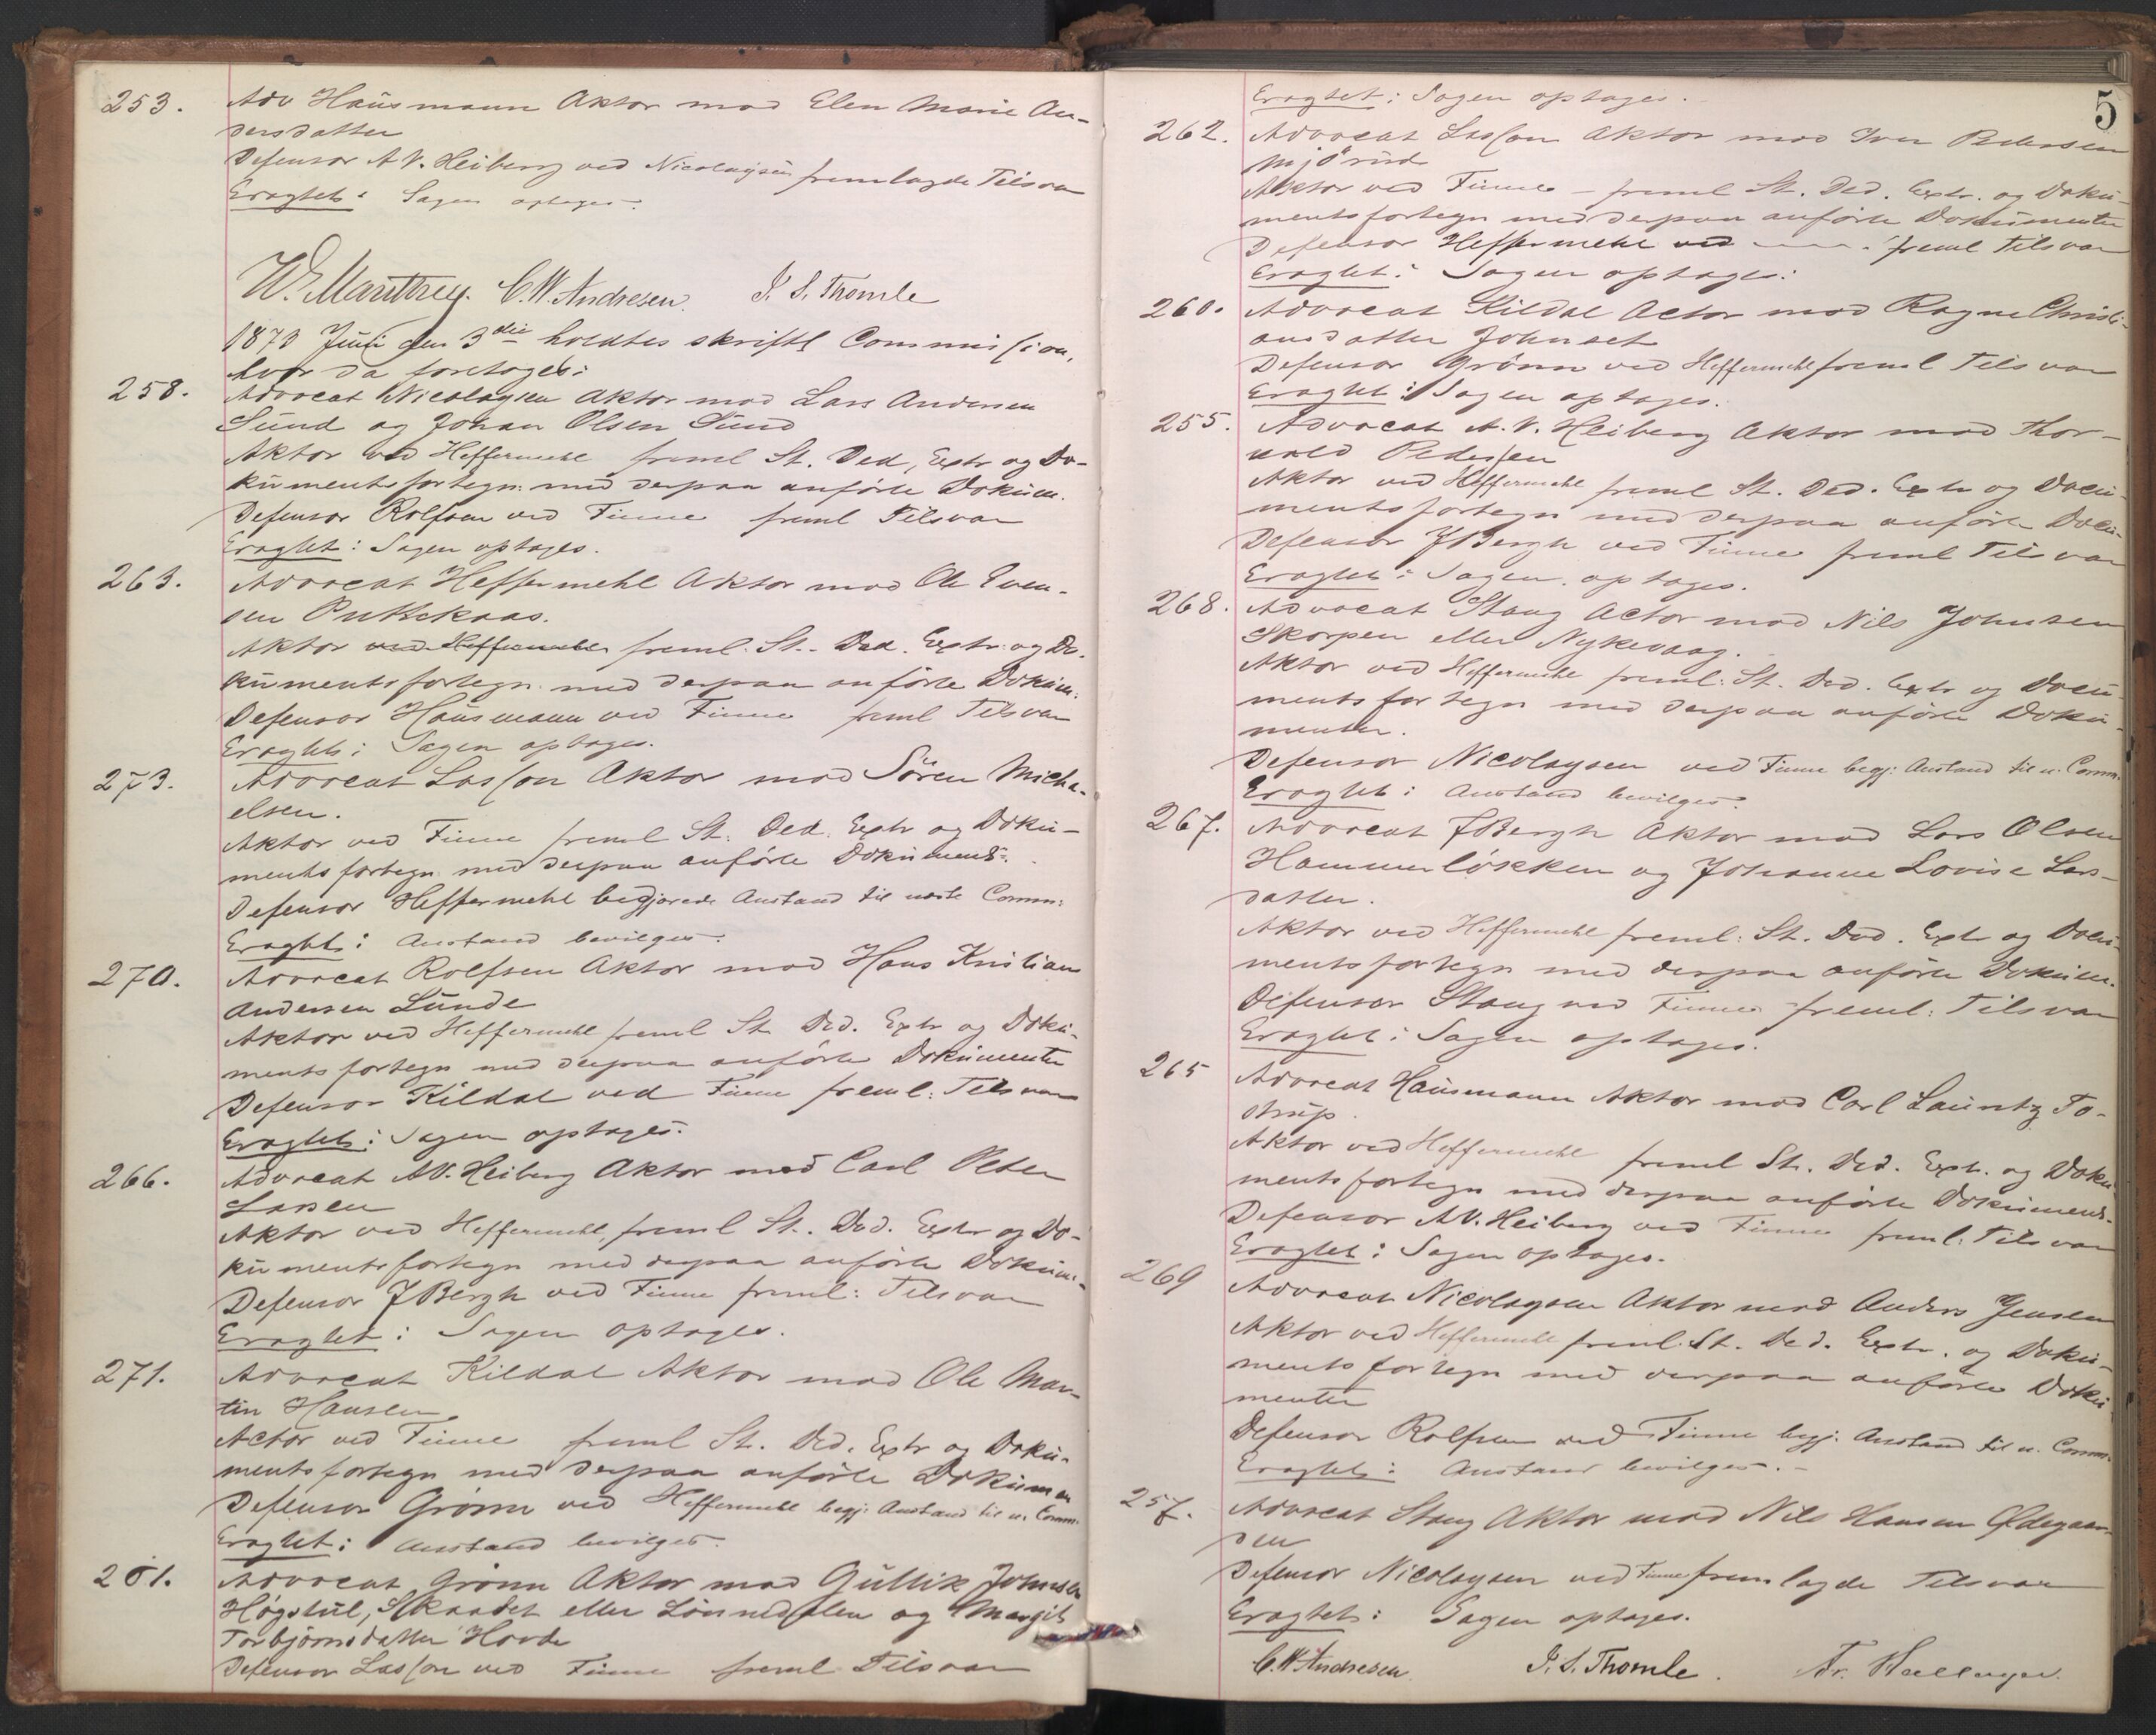 253. Adv Hausmann Aktor mod Elen Marie An-
dersdatter
Defensor A V. Heiberg ved Nicolaysen fremlagde Tilsvar
Eragtet: Sagen optages.
C.W. Andresen. J. S. Thomle
1873 Juni den 3die holdtes skriftl Commission,
hvor da foretoges:
258. Advocat Nicolaysen Aktor mod Lars Andersen
Sund og Johan Olsen Sund
Aktor ved Heffermehl freml St. Ded, Extr og Do-
kumentsfortegn. med derpaa anförte Dokum.
Defensor Rolfsen ved Finne freml Tilsvar
Eragtet: Sagen optages.
263. Advocat Heffermehl Aktor mod Ole Even-
sen Puttekaas.
Aktor ved Heffermehl freml. St. Ded. Extr. og Do-
kumentsfortegn. med derpaa anförte Dokum.
Defensor Hausmann ved Finne freml Tilsvar
Eragtet: Sagen optages.
273. Advocat Lasson Aktor mod Sören Micha-
elsen.
Aktor ved Finne freml St. Ded. Extr og Doku-
mentsfortegn med derpaa anförte Dokument.
Defensor Heffermehl begjærede Anstand til næste Comm:
Eragtet: Anstand bevilges.
270. Advocat Rolfsen Aktor mod Hans Kristian
Andersen Lunde
Aktor ved Heffermehl freml St Ded. Extr og Doku-
mentsfortegn med derpaa anförte Dokumenter
Defensor Kildal ved Finne freml: Tilsvar
Eragtet: Sagen optages.
266. Advocat A.V. Heiberg Aktor mod Carl Peter
Larsen
Aktor ved Heffermehl, freml St. Ded. Extr og Do-
kumentsfortegn med derpaa anförte Dokum.
Defensor J Bergh ved Finne freml: Tilsvar
Eragtet: Sagen optages.
271. Advocat Kildal Aktor mod Ole Mar-
tin Hansen
Actor ved Finne freml St. Ded. Extr og Doku-
mentsfortegn med derpaa anförte Dokumen
Defensor Grönn ved Heffermehl begj: Anstand til n. Comm.
Eragtet: Anstand bevilges.
201. Advocat Grönn Aktor mod Gullik Johnsen
Høgstul, Skaadet eller Lönnedalen og Margit
Torbjörnsdatter Hovde
Defensor Lasson ved Finne freml Tilsvar
5
Eragtet: Sagen optages.
262. Advocat Lasson Aktor mod Iver Pedersen
Mjörud
Aktor ved Finne – freml St. Ded. Extr. og Doku-
mentsfortegn med derpaa anförte Dokumenter
Defensor Heffermehl ved freml Tilsvar
Eragtet: Sagen optages.
260. Advocat Kildal Actor mod Ragne Christi-
ansdatter Johnset
Defensor Grönn ved Heffermehl freml Tilsvar
Eragtet: Sagen optages.
255. Advocat A. V. Heiberg Aktor mod Thor-
vald Pedersen
Aktor ved Heffermehl freml St. Ded. Extr og Docu-
mentsfortegn med derpaa anförte Docu-
Defensor J Bergh ved Finne freml Tilsvar
Eragtet: Sagen optages.
268. Advocat Stang Actor mod Nils Johnsen
Skorpen eller Nykevaag.
Aktor ved Heffermehl freml: St. Ded. Extr og Docu-
mentsfortegn med derpaa anförte Doku-
menter.
Defensor Nicolaysen ved Finne begj: Anstand til n. Comm.
Eragtet: Anstand bevilges.
267. Advocat J Bergh Aktor mod Lars Olsen
Hammerlökken og Johanne Lovise Lars-
datter.
Aktor ved Heffermehl freml: St. Ded. Extr og Docu-
mentsfortegn med derpaa anförte Dokum.
Defensor Stang ved Finne freml: Tilsvar
Eragtet: Sagen optages.
265 Advocat Hausmann Aktor mod Carl Lauritz To-
strup.
Aktor ved Heffermehl freml St. Ded. Extr. og Doku-
mentsfortegn med derpaa anförte Dokument.
Defensor A.V. Heiberg ved Finne freml: Tilsvar
Eragtet: Sagen optages.
269 Advocat Nicolaysen Aktor mod Anders Jensen
Aktor ved Heffermehl freml. St. Ded. Extr. og Doku-
mentsfortegn med derpaa anförte Doku-
menter
Defensor Rolfsen ved Finne begj. Anstand til n. Comm.
Eragtet: Anstand bevilges. –
257. Advocat Stang Aktor mod Nils Hansen Ødegaar-
den
Defensor Nicolaysen ved Finne fremlagde Tilsvar
Eragtet: Sagen optages.
C.W. Andresen. J. S. Thomle.